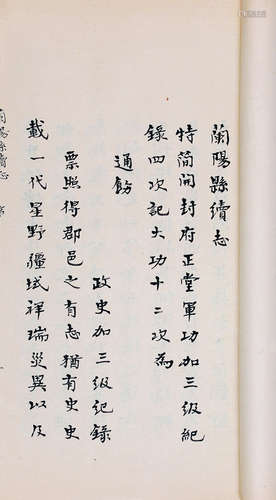 蘭陽縣續志
特簡開封府正堂軍功加三級紀
錄四次記大功十二次為
通飭
政史加三級紀錄
票照得郡邑之有志猶有史史
載一代星野疆域祥瑞災異以及
蘭陽縣續志